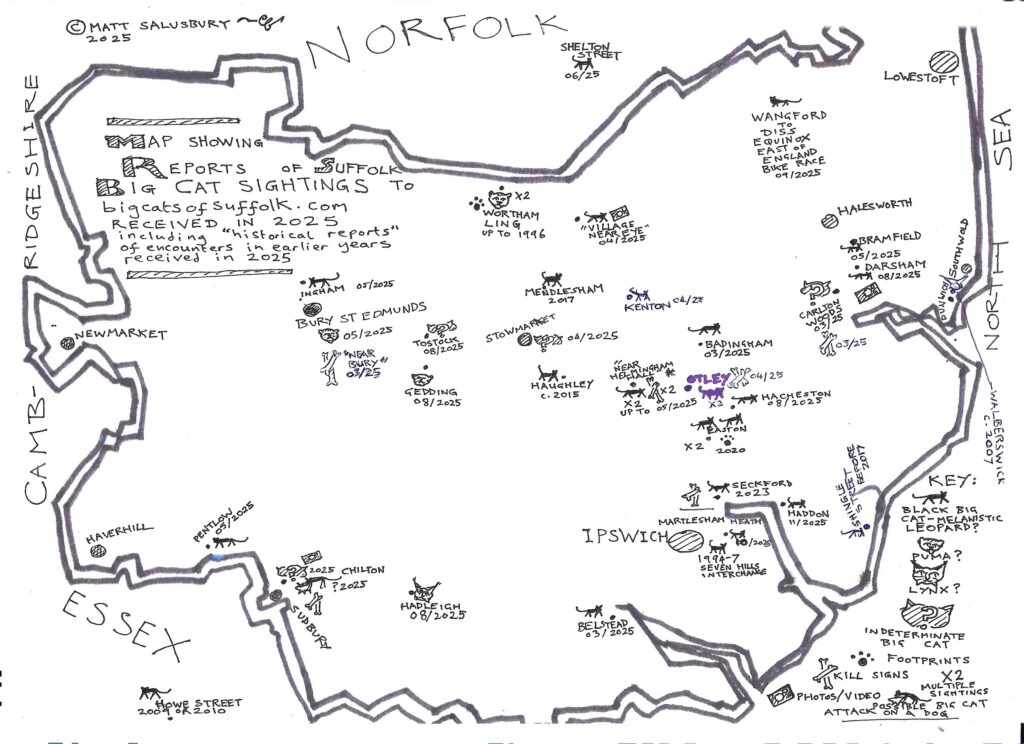 © MATT SALUSBURY
2025
NORFOLK
SHELTON
STREET
06/25
LOWESTOFT
CAMB-
RIDGESHIRE
NORTH SEA
MAP SHOWING
REPORTS OF SUFFOLK
BIG CAT SIGHTINGS TO
bigcatsofsuffolk.com
RECEIVED IN 2025
including "historical reports"
of encounters in earlier years
received in 2025
WANGFORD
TO
DISS
EQUINOX
EAST OF
ENGLAND
BIKE RACE
09/2025
X2
WORTHAM
LING
UP TO 1996
"VILLAGE
NEAR EYE"
04/2025
HALESWORTH
BRAMFIELD
05/2025
DARSHAM
08/2025
SOUTHWOLD
DUNWICH
INGHAM 05/2025
BURY ST EDMUNDS
05/2025
"NEAR
BURY"
03/25
MENDLESHAM
2017
KENTON 04/25
CARLTON
WOODS
03/25
03/25
NEWMARKET
TOSTOCK
08/2025
STOWMARKET
04/2025
BADINGHAM
03/2025
GEDDING
08/2025
HAUGHLEY
C. 2015
"NEAR
HELMINGHAM
HALL"
X2
X2
UP TO 05/2025
OTLEY
X2
04/25
HACHESTON
08/2025
WALBERSWICK
C. 2007
X2
EASTON
2020
SHINGLE
STREET
BEFORE
2017
SECKFORD
2023
MARTLESHAM HEATH
10/2025
HADDON
11/2025
IPSWICH
1994-7
SEVEN HILLS
INTERCHANGE
HAVERHILL
PENTLOW
05/2025
2025 CHILTON
? 2025
SUDBURY
HADLEIGH
08/2025
BELSTEAD
03/2025
ESSEX
HOWE STREET
2009 OR 2010
KEY:
BLACK BIG
CAT-MELANISTIC
LEOPARD?
PUMA?
LYNX?
INDETERMINATE
BIG CAT
FOOTPRINTS
KILL SIGNS
X2
MULTIPLE
SIGHTINGS
PHOTOS/VIDEO
POSSIBLE BIG CAT
ATTACK ON A DOG